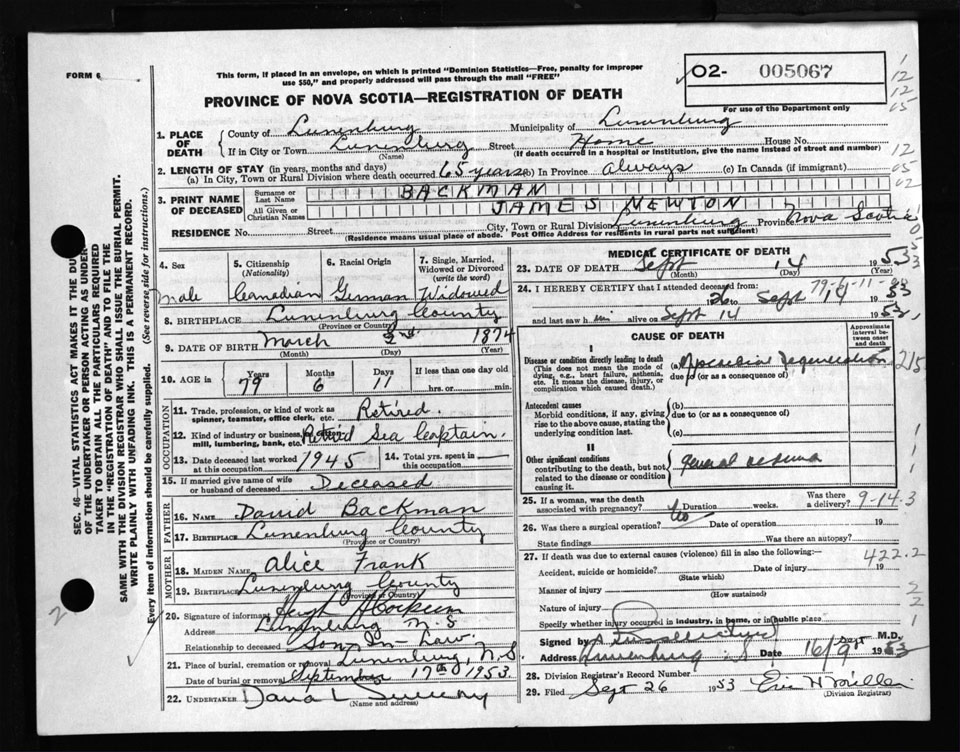 FORM 6
This form, if placed in an envelope, on which is printed "Dominion Statistics—Free, penalty for improper
use $50," and properly addressed will pass through the mail "FREE"
O2- 005067
For use of the Department only
PROVINCE OF NOVA SCOTIA—REGISTRATION OF DEATH
1. PLACE OF DEATH
County of Lunenburg Municipality of Lunenburg
If in City or Town Lunenburg Street Home House No.
(Name) (If death occurred in a hospital or institution, give the name instead of street and number)
2. LENGTH OF STAY (in years, months and days)
(a) In City, Town or Rural Division where death occurred 65 years (b) In Province always (c) In Canada (if immigrant)
3. PRINT NAME OF DECEASED
Surname or Last Name BACKMAN
All Given or Christian Names JAMES NEWTON
RESIDENCE No. Street City, Town or Rural Division Lunenburg Province Nova Scotia
(Residence means usual place of abode. Post Office Address for residents in rural parts not sufficient)
4. Sex
5. Citizenship (Nationality)
6. Racial Origin
7. Single, Married, Widowed or Divorced (write the word)
Male Canadian German Widowed
8. BIRTHPLACE Lunenburg County
(Province or Country)
9. DATE OF BIRTH March 2nd 1874
(Month) (Day) (Year)
10. AGE in Years Months Days If less than one day old
79 6 11 hrs. or min.
OCCUPATION
11. Trade, profession, or kind of work as spinner, teamster, office clerk, etc. Retired.
12. Kind of industry or business, mill, lumbering, bank, etc. Retired Sea Captain.
13. Date deceased last worked at this occupation 1945
14. Total yrs. spent in this occupation —
15. If married give name of wife or husband of deceased Deceased
FATHER
16. NAME David Backman
17. BIRTHPLACE Lunenburg County
(Province or Country)
MOTHER
18. MAIDEN NAME Alice Frank
19. BIRTHPLACE Lunenburg County
(Province or Country)
20. Signature of informant Hugh
Address Lunenburg N.S
Relationship to deceased Son-in-Law.
21. Place of burial, cremation or removal Lunenburg, N.S.
Date of burial or removal September 17th 1953.
22. UNDERTAKER
(Name and address)
MEDICAL CERTIFICATE OF DEATH
23. DATE OF DEATH Sept 14 1953
(Month) (Day) (Year)
24. I HEREBY CERTIFY that I attended deceased from
26 to Sept 14 1953
and last saw him alive on Sept 14 1953,
CAUSE OF DEATH
Approximate interval between onset and death
I
Disease or condition directly leading to death
(This does not mean the mode of dying, e.g., heart failure, asthenia, etc. It means the disease, injury, or complication which caused death.)
(a) Myocardial Degeneration
due to (or as a consequence of)
Antecedent causes
Morbid conditions, if any, giving rise to the above cause, stating the underlying condition last.
(b)
due to (or as a consequence of)
(c)
II
Other significant conditions
contributing to the death, but not related to the disease or condition causing it.
general
25. If a woman, was the death associated with pregnancy? No Duration weeks. Was there a delivery? 9-14.3
26. Was there a surgical operation? Date of operation 19
State findings Was there an autopsy?
27. If death was due to external causes (violence) fill in also the following:— 422.2
Accident, suicide or homicide? Date of injury 19
(State which)
Manner of injury
(How sustained)
Nature of injury
Specify whether injury occurred in industry, in home, or in public place
Signed by M.D.
Address Lunenburg N.S. Date 16/Sept 1953
28. Division Registrar's Record Number
29. Filed Sept 26 1953
(Division Registrar)
SEC. 46—VITAL STATISTICS ACT MAKES IT THE DUTY
OF THE UNDERTAKER OR PERSON ACTING AS UNDER-
TAKER TO OBTAIN ALL THE PARTICULARS REQUIRED
IN THE "REGISTRATION OF DEATH" AND TO FILE THE
SAME WITH THE DIVISION REGISTRAR WHO SHALL ISSUE THE BURIAL PERMIT.
WRITE PLAINLY WITH UNFADING INK. THIS IS A PERMANENT RECORD.
Every item of information should be carefully supplied. (See reverse side for instructions.)